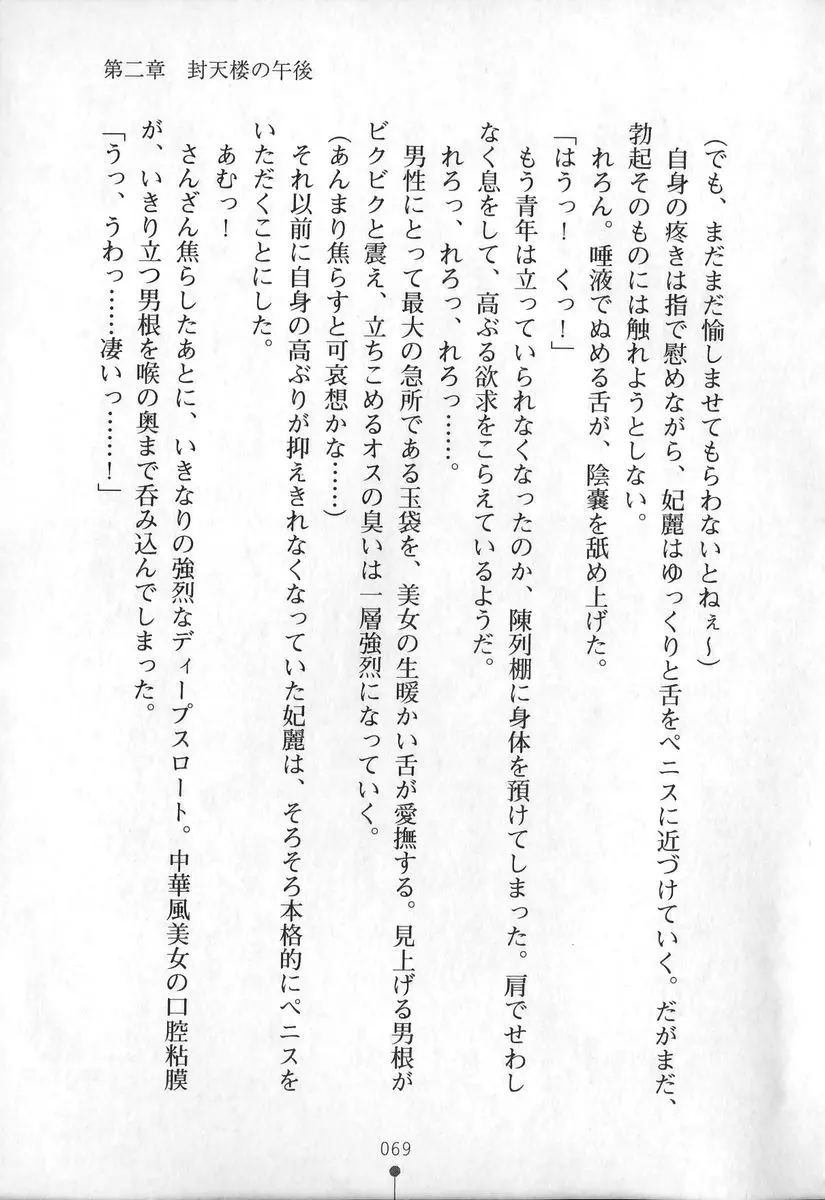 第二章　封天楼の午後
（でも、まだまだ愉しませてもらわないとねぇ～）
自身の疼きは指で慰めながら、妃麗はゆっくりと舌をペニスに近づけていく。だがまだ、
勃起そのものには触れようとしない。
れろん。唾液でぬめる舌が、陰嚢を舐め上げた。
「はうっ！　くっ！」
もう青年は立っていられなくなったのか、陳列棚に身体を預けてしまった。肩でせわし
なく息をして、高ぶる欲求をこらえているようだ。
れろっ、れろっ、れろっ……。
男性にとって最大の急所である玉袋を、美女の生暖かい舌が愛撫する。見上げる男根が
ビクビクと震え、立ちこめるオスの臭いは一層強烈になっていく。
（あんまり焦らすと可哀想かな……）
それ以前に自身の高ぶりが抑えきれなくなっていた妃麗は、そろそろ本格的にペニスを
いただくことにした。
あむっ！
さんざん焦らしたあとに、いきなりの強烈なディープスロート。中華風美女の口腔粘膜
が、いきり立つ男根を喉の奥まで呑み込んでしまった。
「うっ、うわっ……凄いっ……！」
069